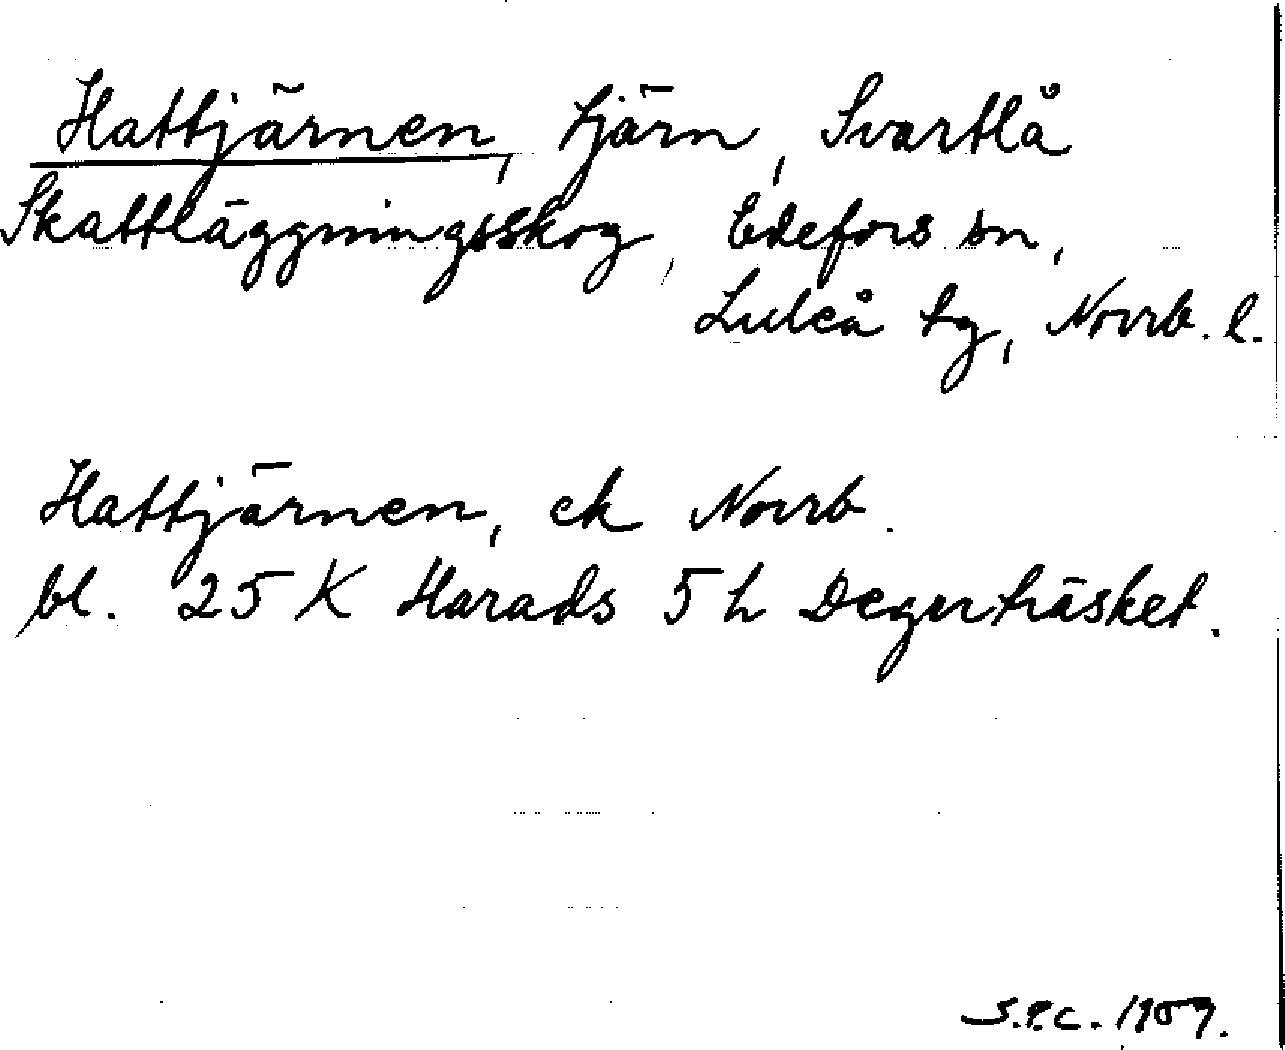 Hattjärnen, tjärn, Svartlå
Skattläggningsskog, Edefors sn,
Luleå tg, Norrb. l.
Hattjärnen, ek Norrb.
bl. 25 K Harads 5 h Degerträsket.
S.P.C. 1959.